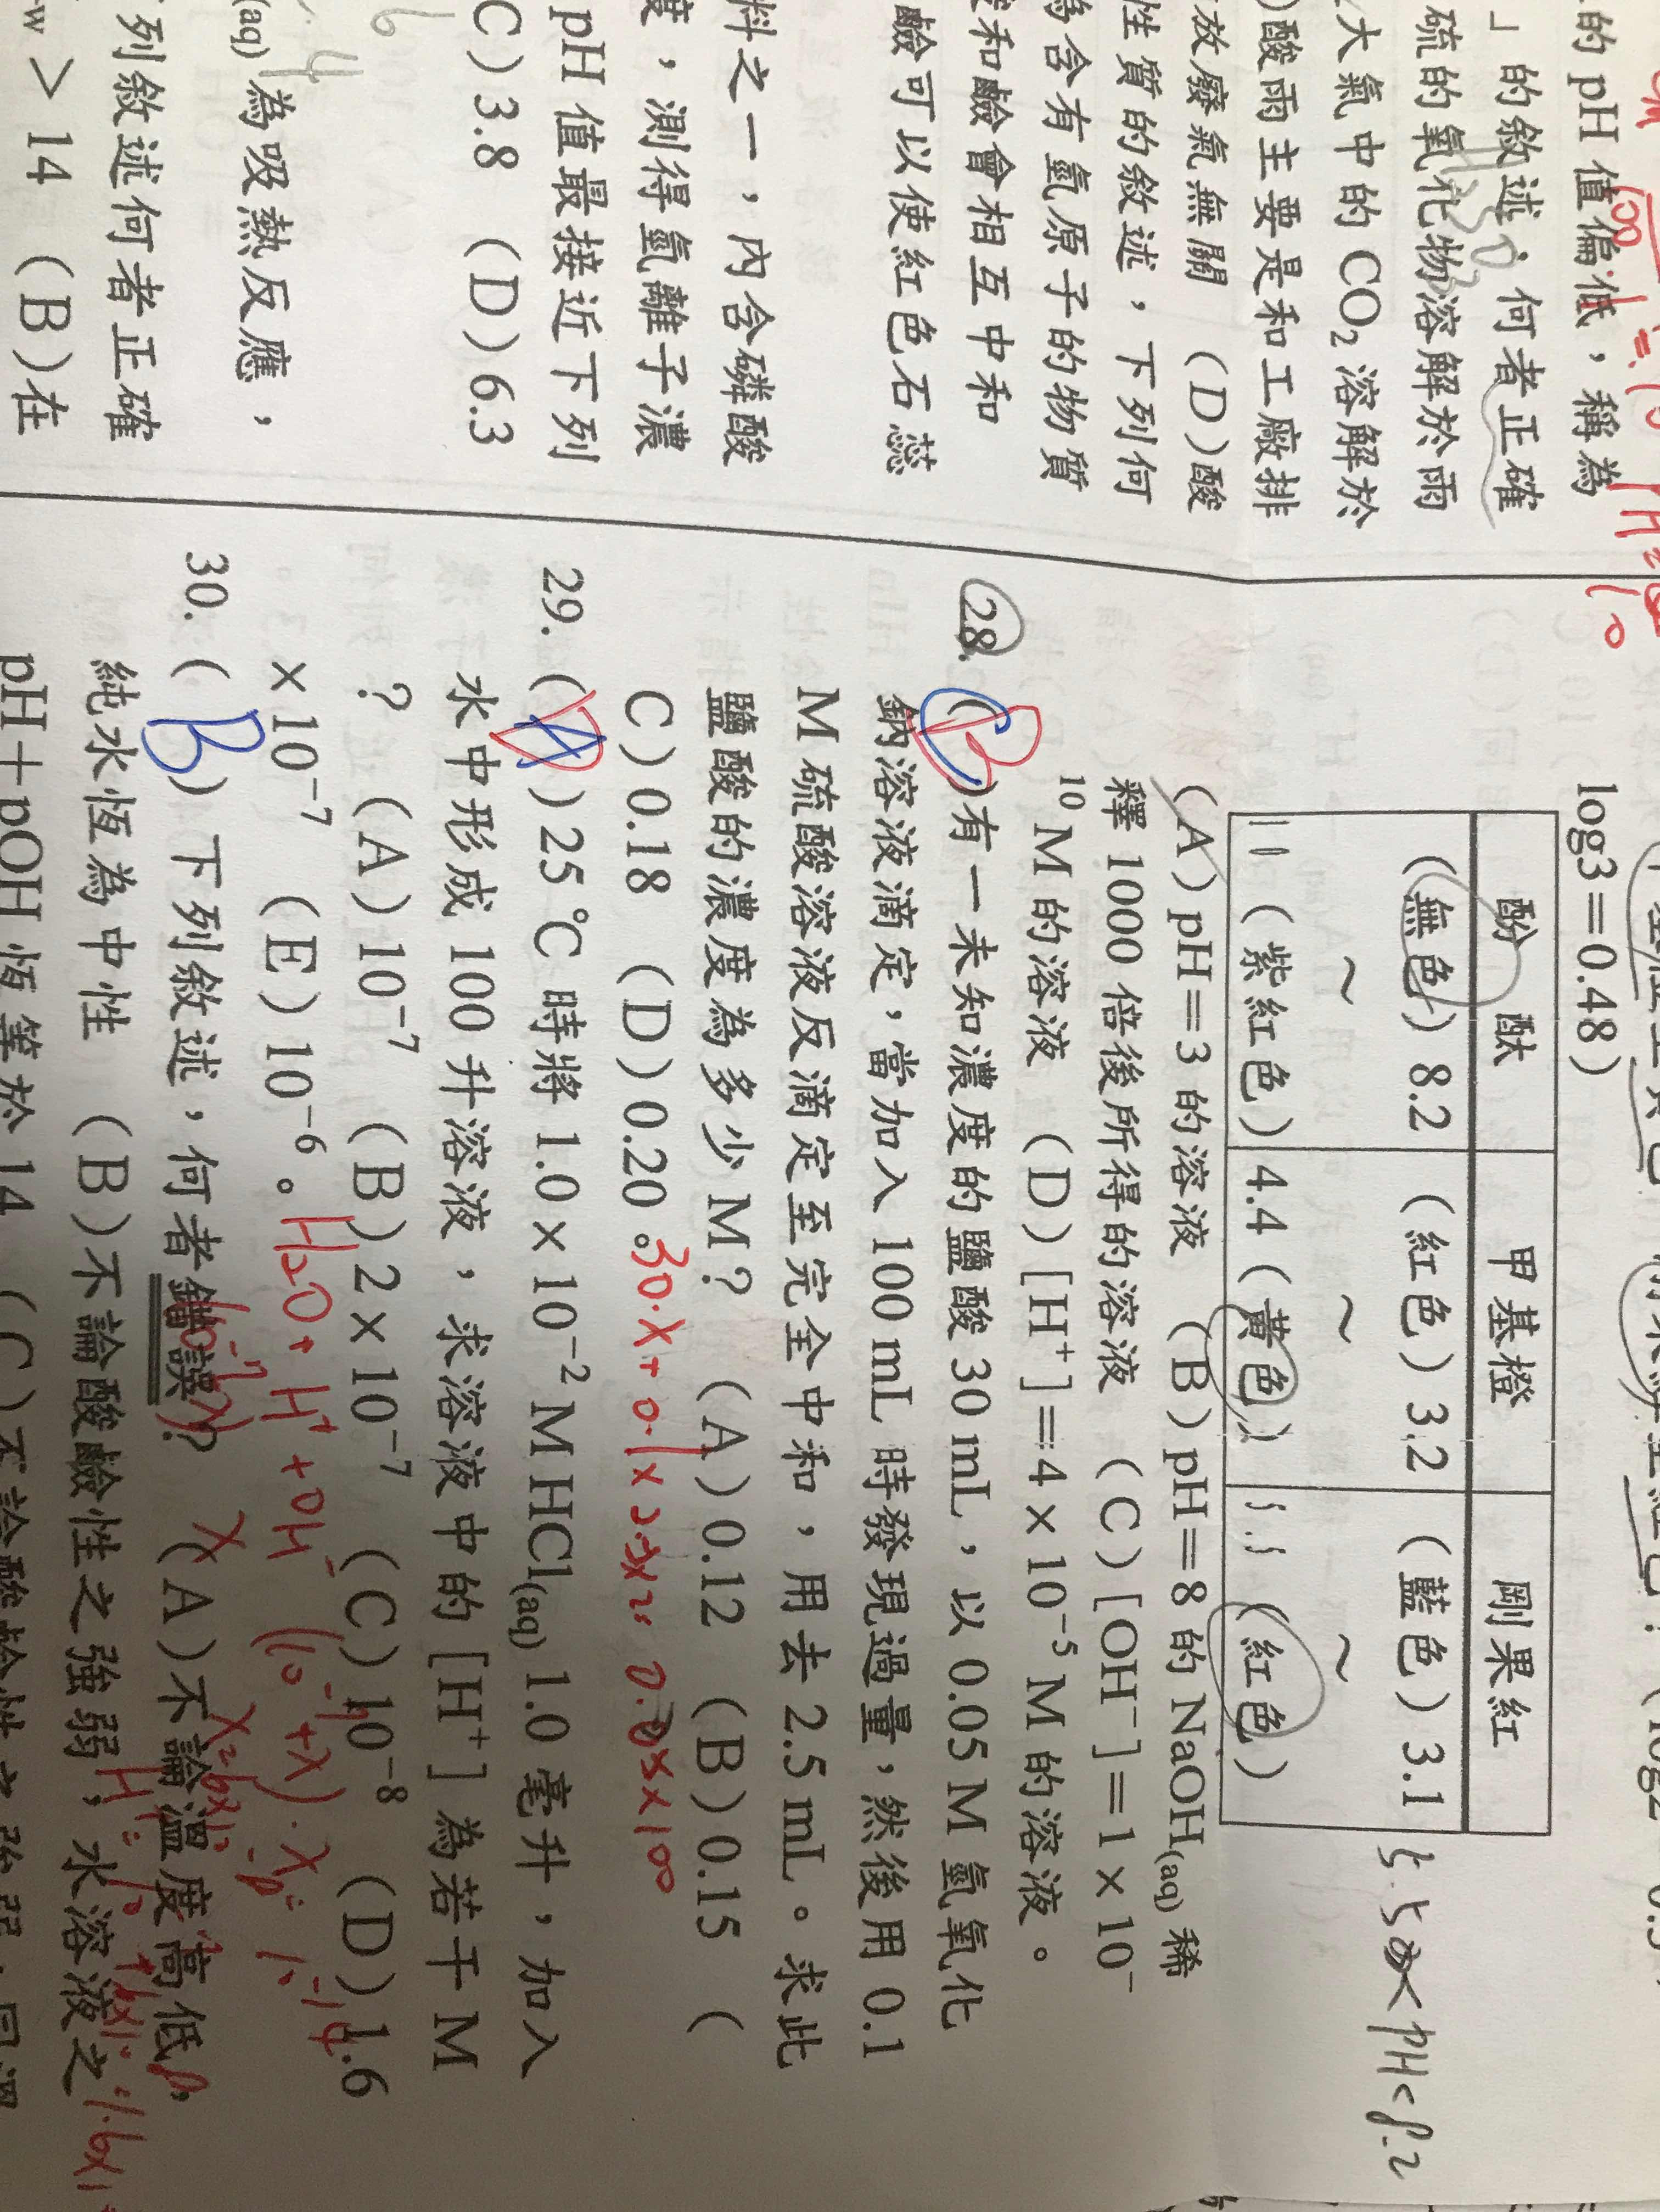 的 pH 值偏低，稱為
」的敘述，何者正確
硫的氧化物溶解於雨
大氣中的 CO₂ 溶解於
)酸雨主要是和工廠排
放廢氣無關 (D)酸
性質的敘述，下列何
為含有氫原子的物質
和鹼會相互中和
鹼可以使紅色石蕊
料之一，內含磷酸
度，測得氫離子濃
pH 值最接近下列
C)3.8 (D)6.3
(aq) 為吸熱反應，
列敘述何者正確
w > 14 (B)在
log3＝0.48)
酚 酞 甲基橙 剛果紅
(無色) 8.2 (紅色) 3.2 (藍色) 3.1
~ ~ ~
10 (紫紅色) 4.4 (黃色) 5.5 (紅色)
5.5 < pH < 8.2
(A) pH＝3 的溶液 (B) pH＝8 的 NaOH(aq) 稀
釋 1000 倍後所得的溶液 (C) [OH⁻]＝1×10⁻
¹⁰ M 的溶液 (D) [H⁺]＝4×10⁻⁵ M 的溶液。
28. (B)有一未知濃度的鹽酸 30 mL，以 0.05 M 氫氧化
鈉溶液滴定，當加入 100 mL 時發現過量，然後用 0.1
M 硫酸溶液反滴定至完全中和，用去 2.5 mL。求此
鹽酸的濃度為多少 M？ (A)0.12 (B)0.15 (
C)0.18 (D)0.20。
30·X+0.1×2.5×2=0.05×100
29. (A)25℃ 時將 1.0×10⁻² M HCl(aq) 1.0 毫升，加入
水中形成 100 升溶液，求溶液中的 [H⁺] 為若干 M
？ (A)10⁻⁷ (B)2×10⁻⁷ (C)10⁻⁸ (D)1.6
×10⁻⁷ (E)10⁻⁶。
H₂O → H⁺ + OH⁻
30. (B) 下列敘述，何者錯誤？ (A)不論溫度高低，
純水恆為中性 (B)不論酸鹼性之強弱，水溶液之
pH＋pOH 恆等於 14